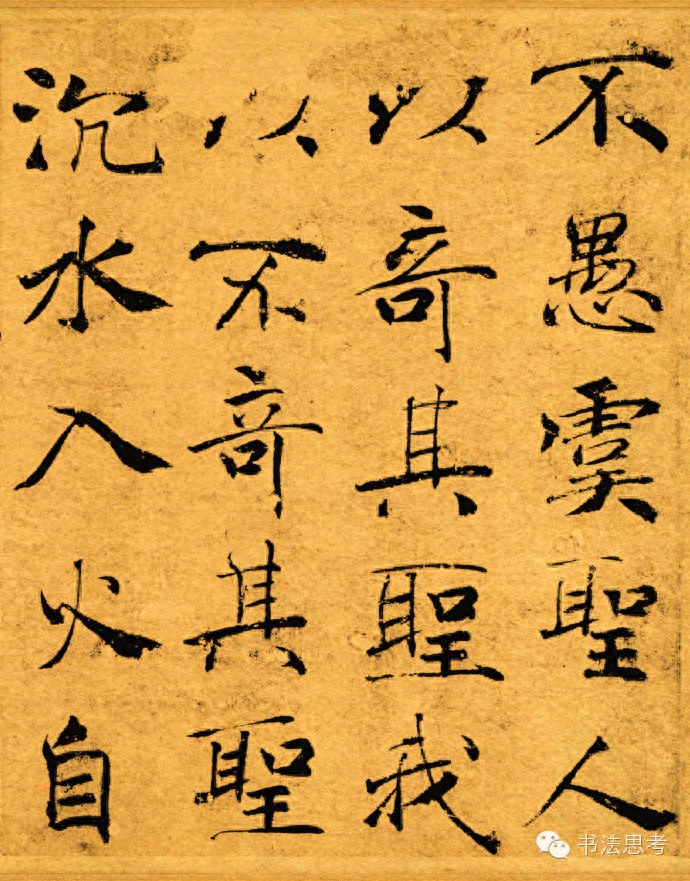 不愚虞聖人
以竒其聖我
以不竒其聖
沉水入火自
书法思考